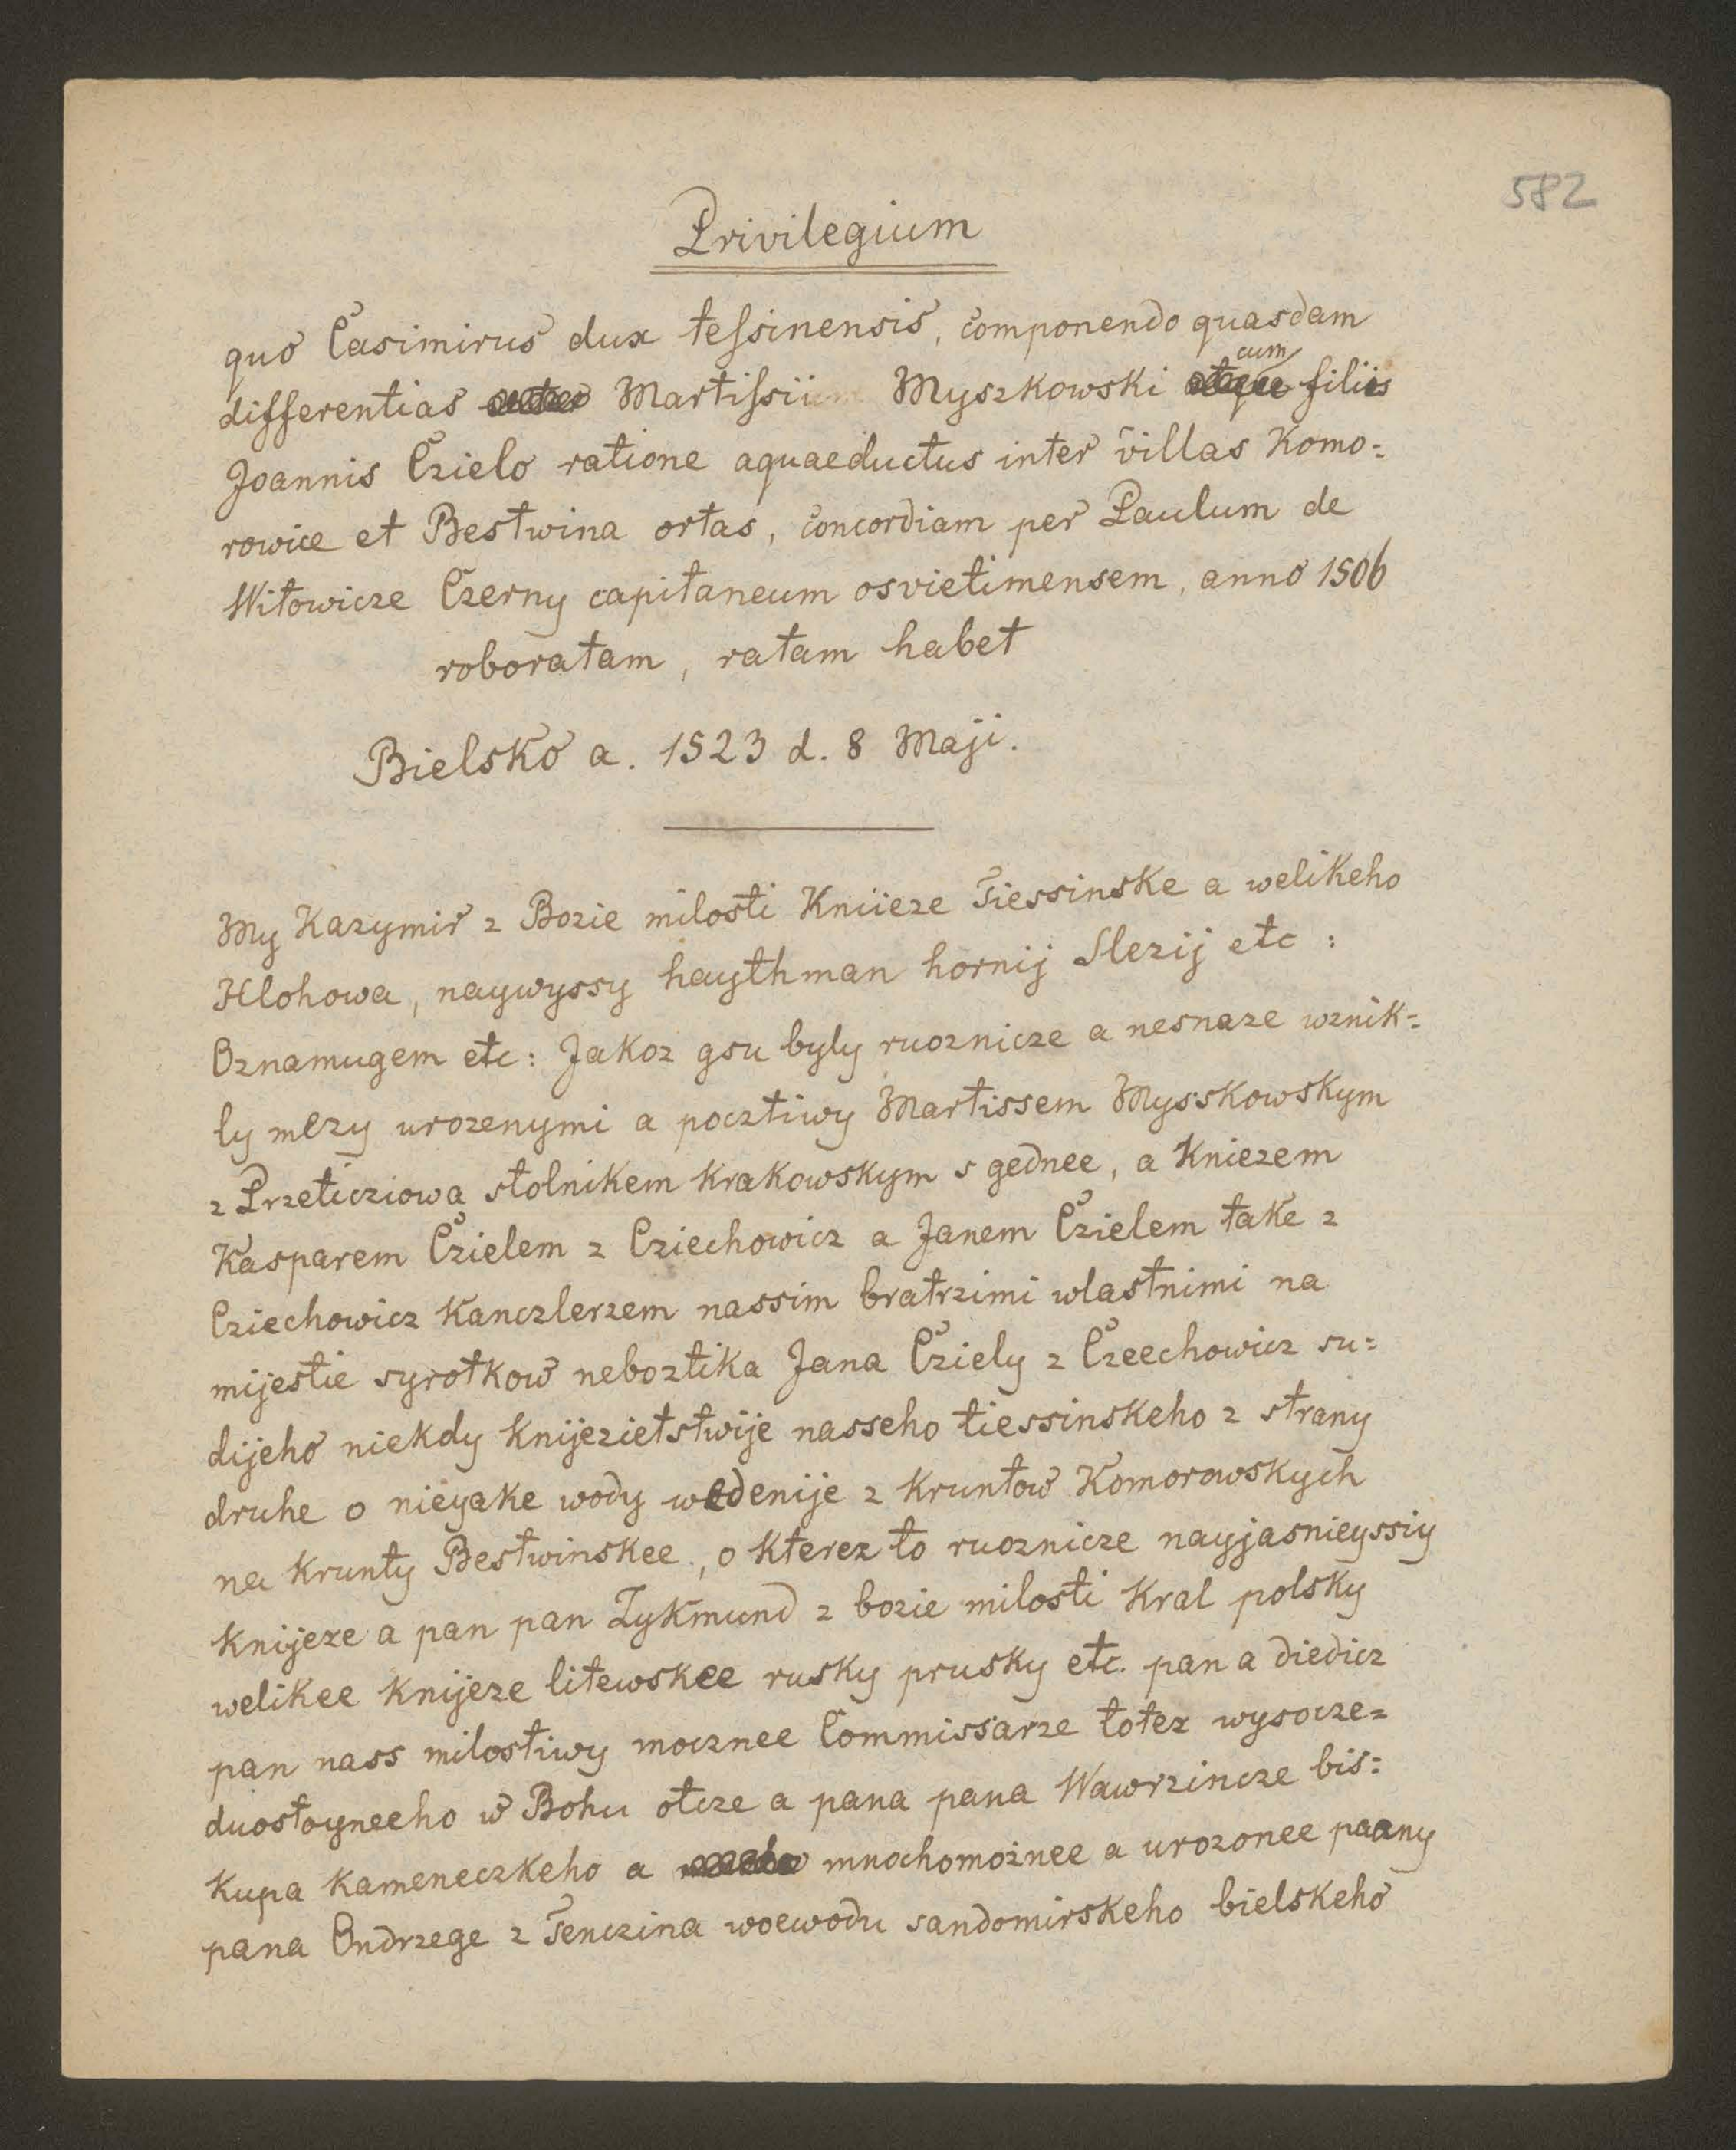 582
Privilegium
quo Casimirus dux teſsinensis, componendo quasdam
cum
differentias Martiſsium Myszkowski filiis
Joannis Czielo ratione aquaeductus inter villas Komo=
rowice et Bestwina ortas, concordiam per Paulum de
Witowicze Czerny capitaneum osvietimensem, anno 1506
roboratam, ratam habet
Bielsko a. 1523 d. 8 Maji.
My Kazymir z Bozie milosti Kniieze Tiessinske a welikeho
Hlohowa, naywyssy haythman hornij Slezij etc :
Oznamugem etc : Jakoz gsu byly ruoznicze a nesnaze wznik=
ly mezy urozenymi a pocztiwy Martissem Mysskowskym
z Przeticziowa stolnikem krakowskym s gednee, a Kniezem
Kasparem Czielem z Cziechowicz a Janem Czielem take z
Cziechowicz Kanczlerzem nassim bratrzimi wlastnimi na
mijestie syrotkow neboztika Jana Cziely z Czeechowicz su=
dijeho niekdy knijezietstwije nasseho tiessinskeho z strany
druhe o nieyake wody wedenije z kruntow Komorowskych
na krunty Bestwinskee, o kterez to ruoznicze nayjasnieyssiy
knijeze a pan pan Zykmund z bozie milosti kral polsky
welikee knijeze litewskee rusky prusky etc. pan a diedicz
pan nass milostiwy mocznee Commissarze totez wysocze=
duostoyneeho w Bohu otcze a pana pana Wawrzincze bis=
kupa kameneczkeho a mnochomożnee a urozonee paany
pana Ondrzege z Tenczina woewodu sandomirskeho bielskeho